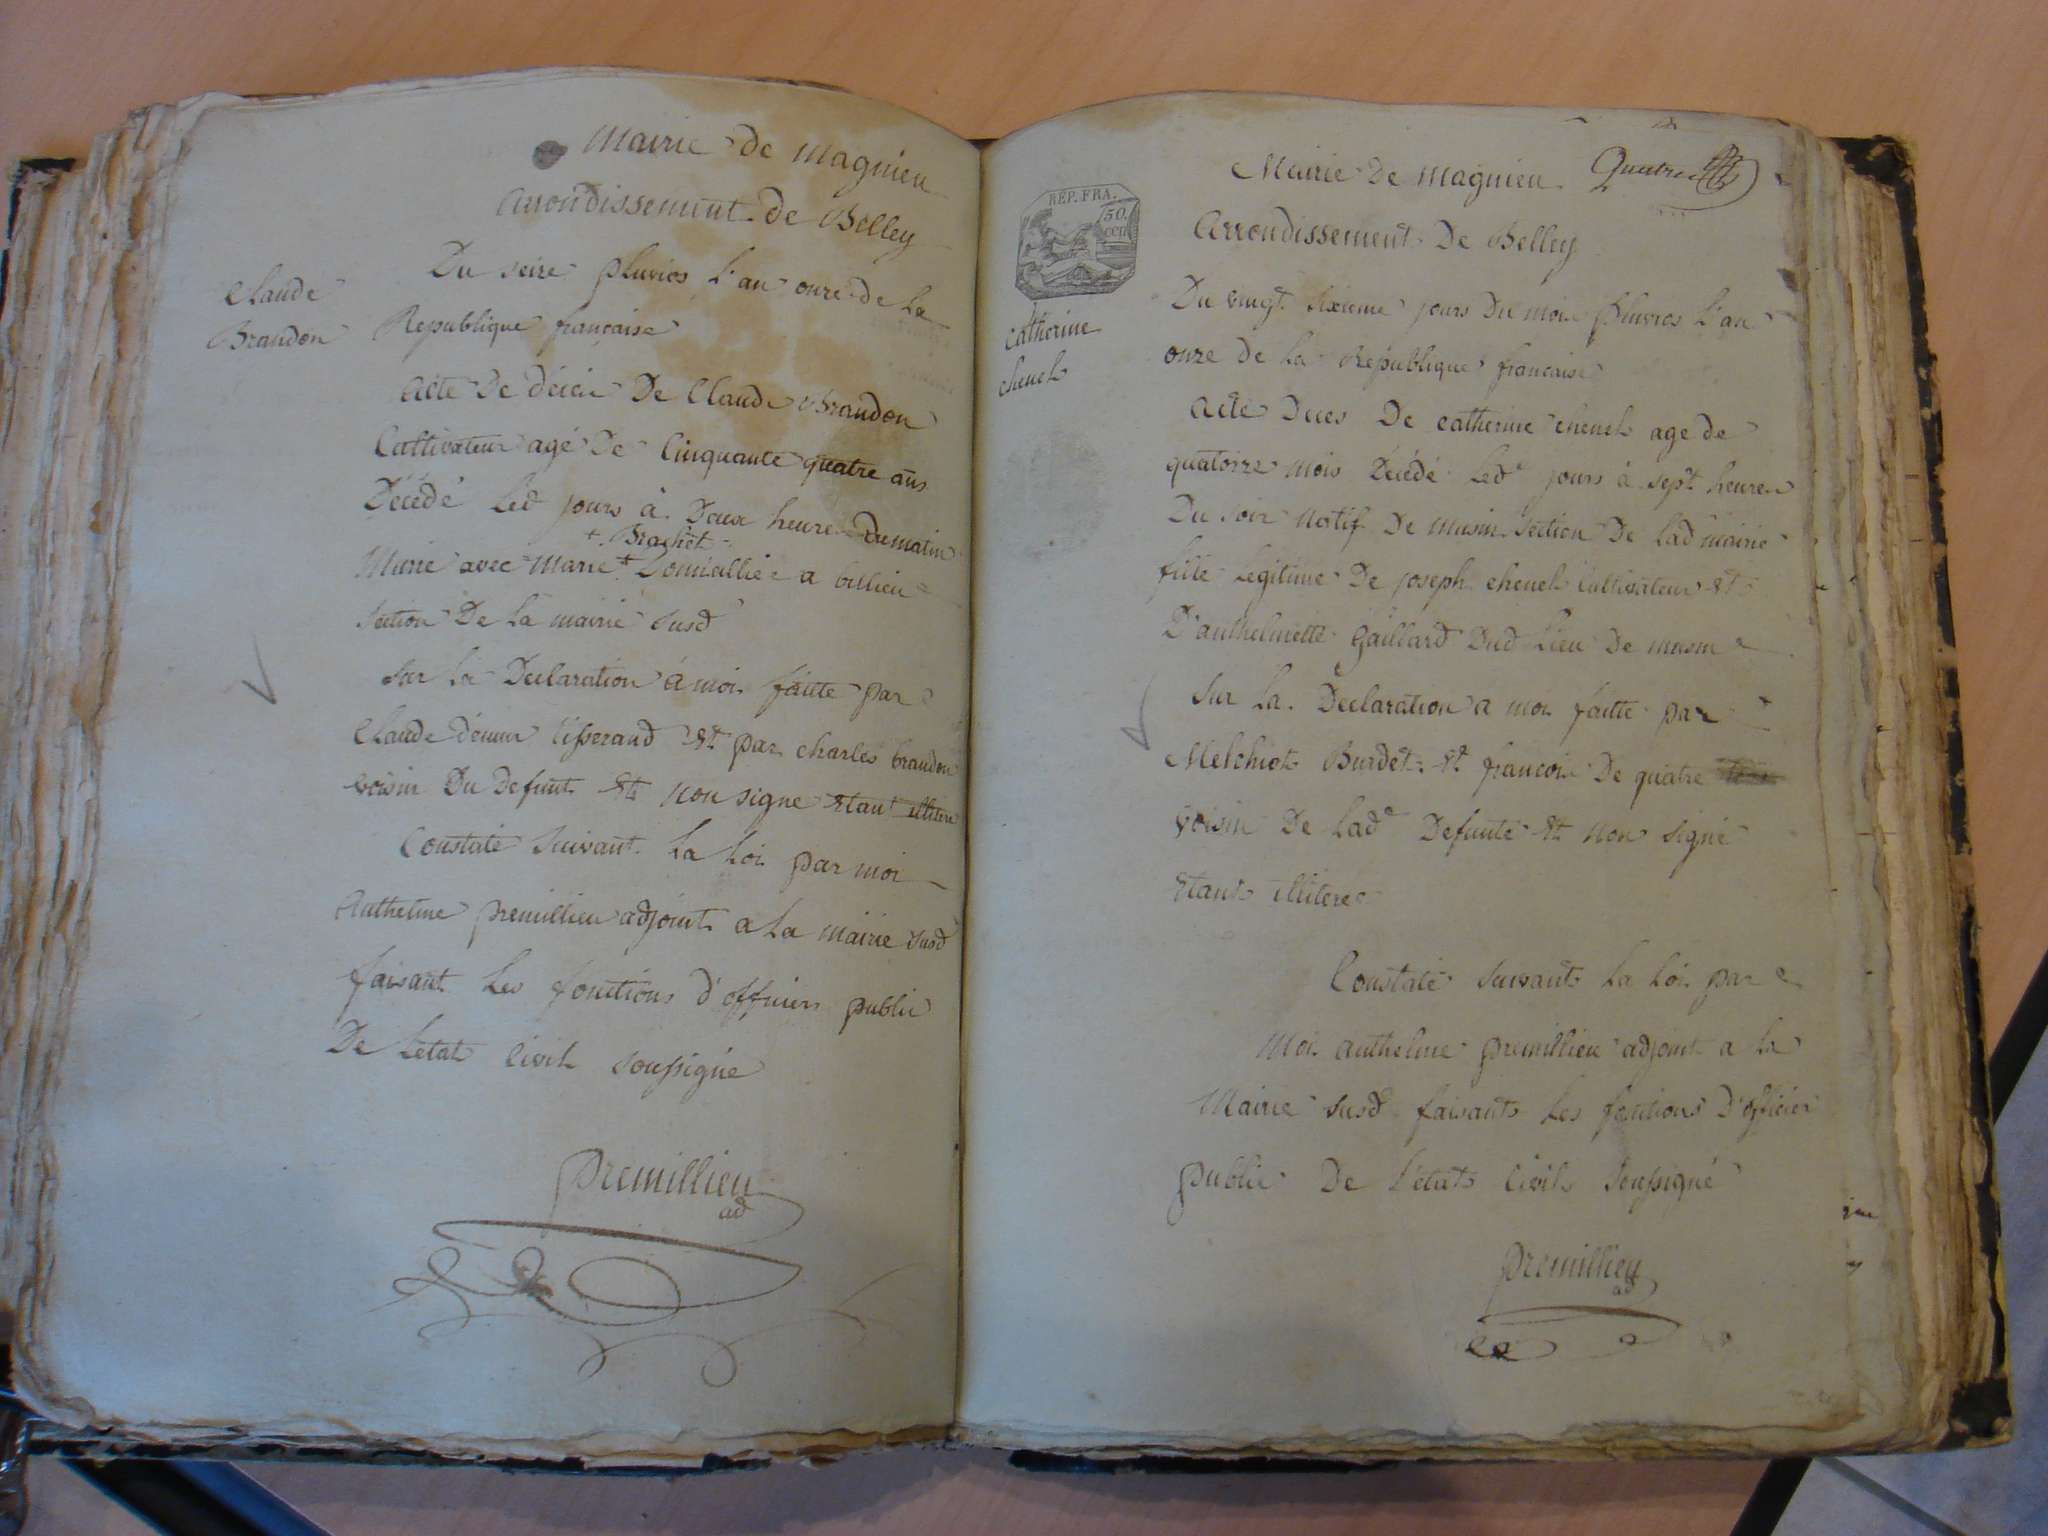 Mairie de magnieu
Arrondissement de Belley
Du seize pluvios l'an onze de la
Claude
Brandon
Republique francaise
Acte De décès De Claude Brandon
Cultivateur agé De Cinquante quatre ans
Décédé led jours à Deux heure Du matin
+ Brachet
Marie avec Marie + Domicilliée a billieu
Section De la mairie susd
Sur la Declaration à moi faitte par
Claude tisserand et par charles brandon
voisin Du Defunt et non signe etant illitere
Constaté Suivant La Loi par moi
Anthelme premillieu adjoint a La mairie susd
faisant Les fonctions d'officier public
De Letat Civil soussigné
premillieu
ad
Mairie De magnieu
Quatre
Arrondissement De Belley
RÉP. FRA.
50.
cen
Du vingt sixieme jours Du mois pluvios l'an
catherine
chenel
onze De La Republique francaise
Acte Deces De catherine chenel age de
quatorze mois Décédé led.e jours à sept heures
Du soir Natif De musin Section De lad mairie
fille Legitime De joseph chenel Cultivateur et
D'anthelmette gaillard Dud Lieu De musin
Sur La Declaration a moi faitte par
Melchiot Burdet et francois De quatre
voisin De lad.e Defunte et non signé
etant illitere
Constaté suivant La Loi par
Moi anthelme premillieu adjoint a La
Mairie susd faisant Les fontions D'officier
public De L'etat Civil soussigné
premillieu
ad